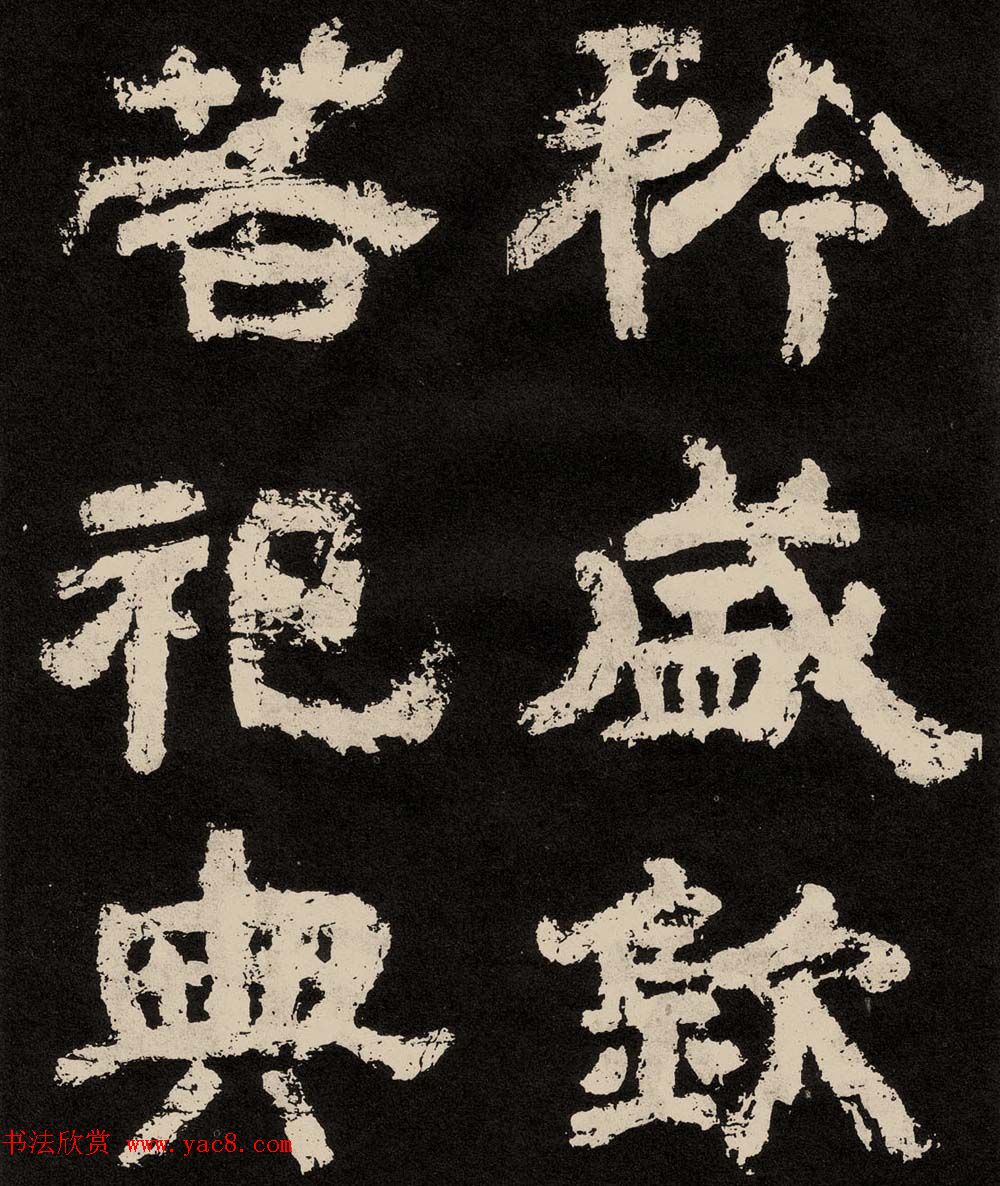 矜盛欽
若祀典
书法欣赏 www.yac8.com